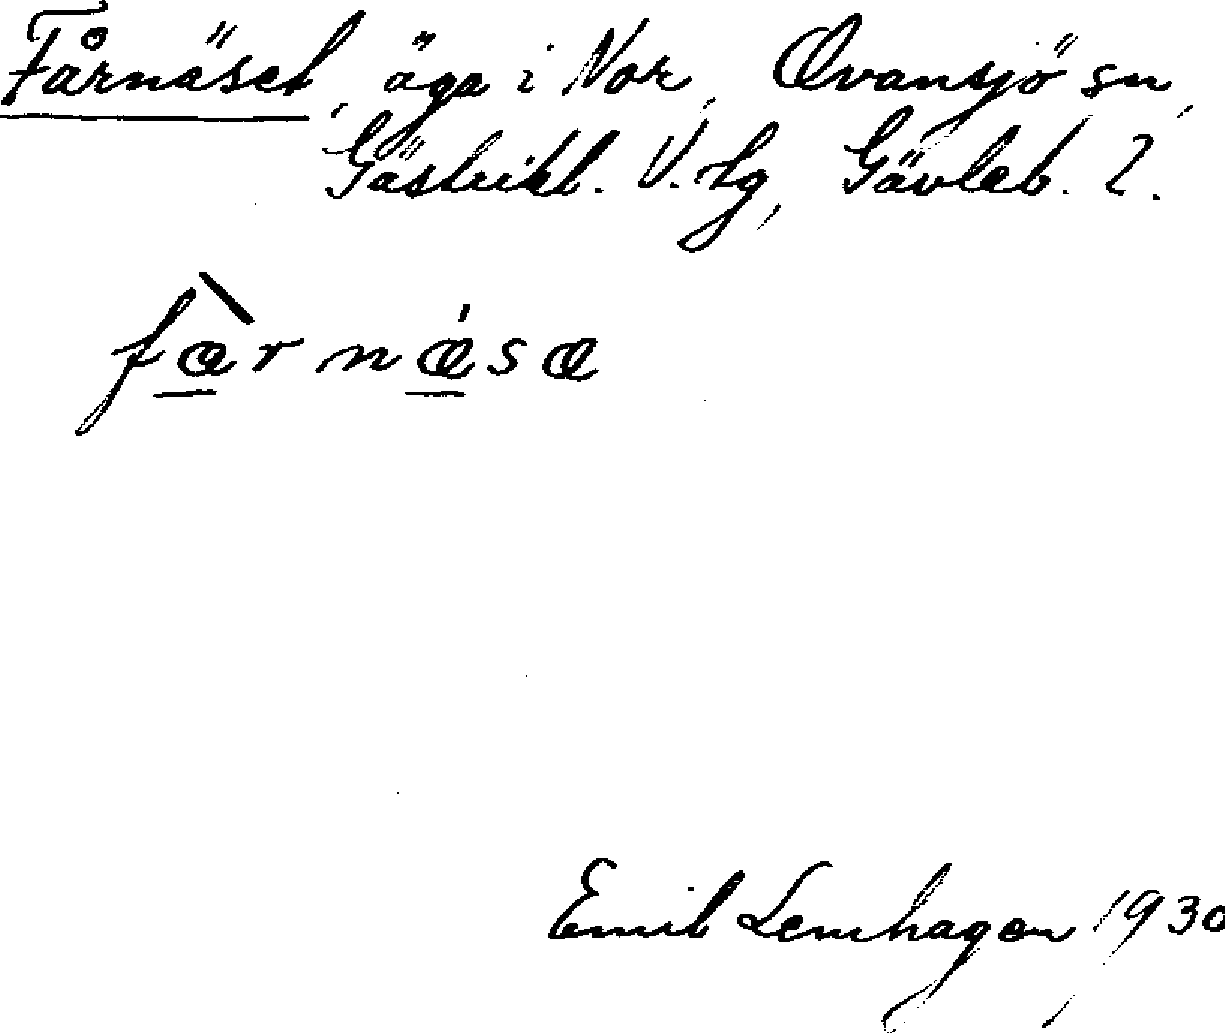 Fårnäset, äga i Nor, Ovansjö sn,
Gästrikl. V. tg, Gävleb. l.
fæ̀rnǽsæ
Emil Lenhagen 1930